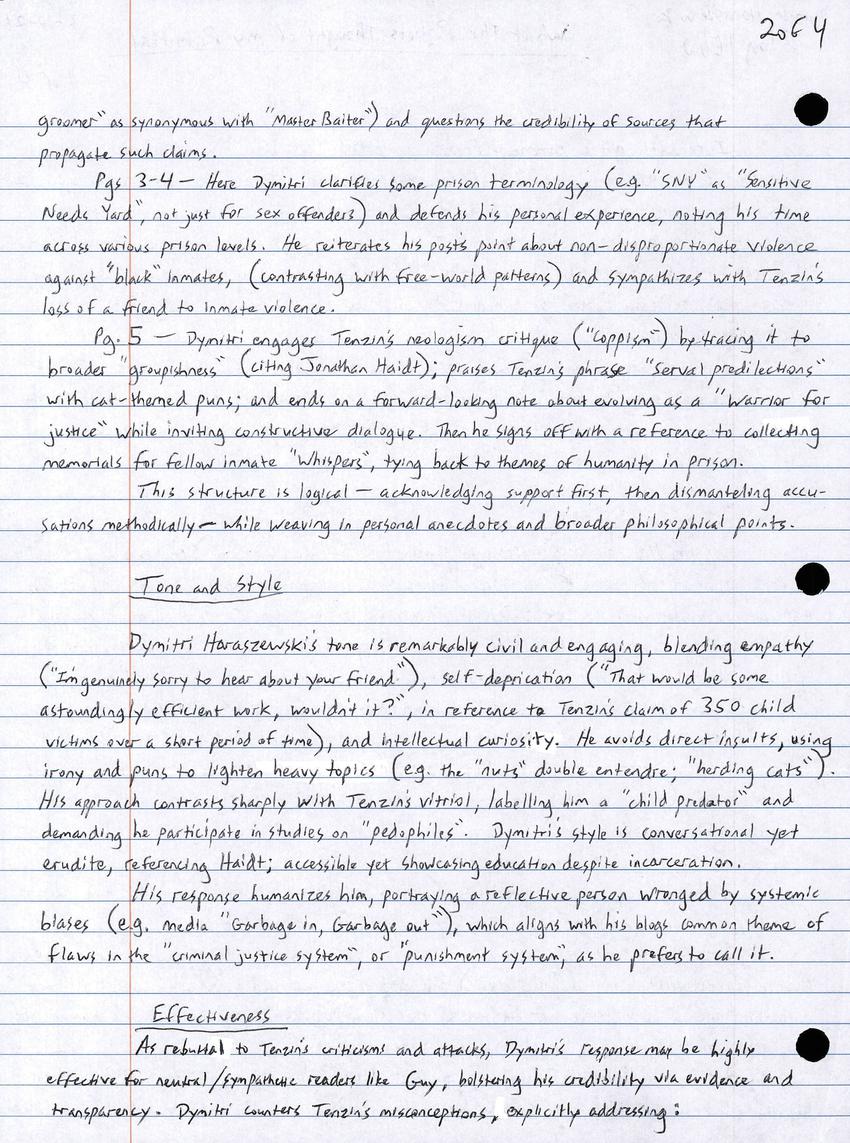 2 of 4
groomer" as synonymous with "Master Baiter") and questions the credibility of sources that
propagate such claims.
Pgs 3-4 — Here Dymitri clarifies some prison terminology (e.g. "SNY" as "Sensitive
Needs Yard", not just for sex offenders) and defends his personal experience, noting his time
across various prison levels. He reiterates his post's point about non-disproportionate violence
against "black" inmates, (contrasting with free-world patterns) and sympathizes with Tenzin's
loss of a friend to inmate violence.
Pg. 5 — Dymitri engages Tenzin's neologism critique ("Coppism") by tracing it to
broader "groupishness" (citing Jonathan Haidt); praises Tenzin's phrase "Serval predilections"
with cat-themed puns; and ends on a forward-looking note about evolving as a "Warrior for
justice" while inviting constructive dialogue. Then he signs off with a reference to collecting
memorials for fellow inmate "Whispers", tying back to themes of humanity in prison.
This structure is logical — acknowledging support first, then dismanteling accu-
sations methodically — while weaving in personal anecdotes and broader philosophical points.
Tone and Style
Dymitri Haraszewski's tone is remarkably civil and engaging, blending empathy
("I'm genuinely sorry to hear about your friend"), self-deprication ("That would be some
astoundingly efficient work, wouldn't it?", in reference to Tenzin's claim of 350 child
victims over a short period of time), and intellectual curiosity. He avoids direct insults, using
irony and puns to lighten heavy topics (e.g. the "nuts" double entendre; "herding cats").
His approach contrasts sharply with Tenzin's vitriol, labelling him a "child predator" and
demanding he participate in studies on "pedophiles". Dymitri's style is conversational yet
erudite, referencing Haidt; accessible yet showcasing education despite incarceration.
His response humanizes him, portraying a reflective person wronged by systemic
biases (e.g. media "Garbage in, Garbage out"), which aligns with his blogs common theme of
flaws in the "criminal justice system", or "punishment system", as he prefers to call it.
Effectiveness
As rebuttal to Tenzin's criticisms and attacks, Dymitri's response may be highly
effective for neutral/sympathetic readers like Guy, bolstering his credibility via evidence and
transparency. Dymitri counters Tenzin's misconceptions, explicitly addressing: